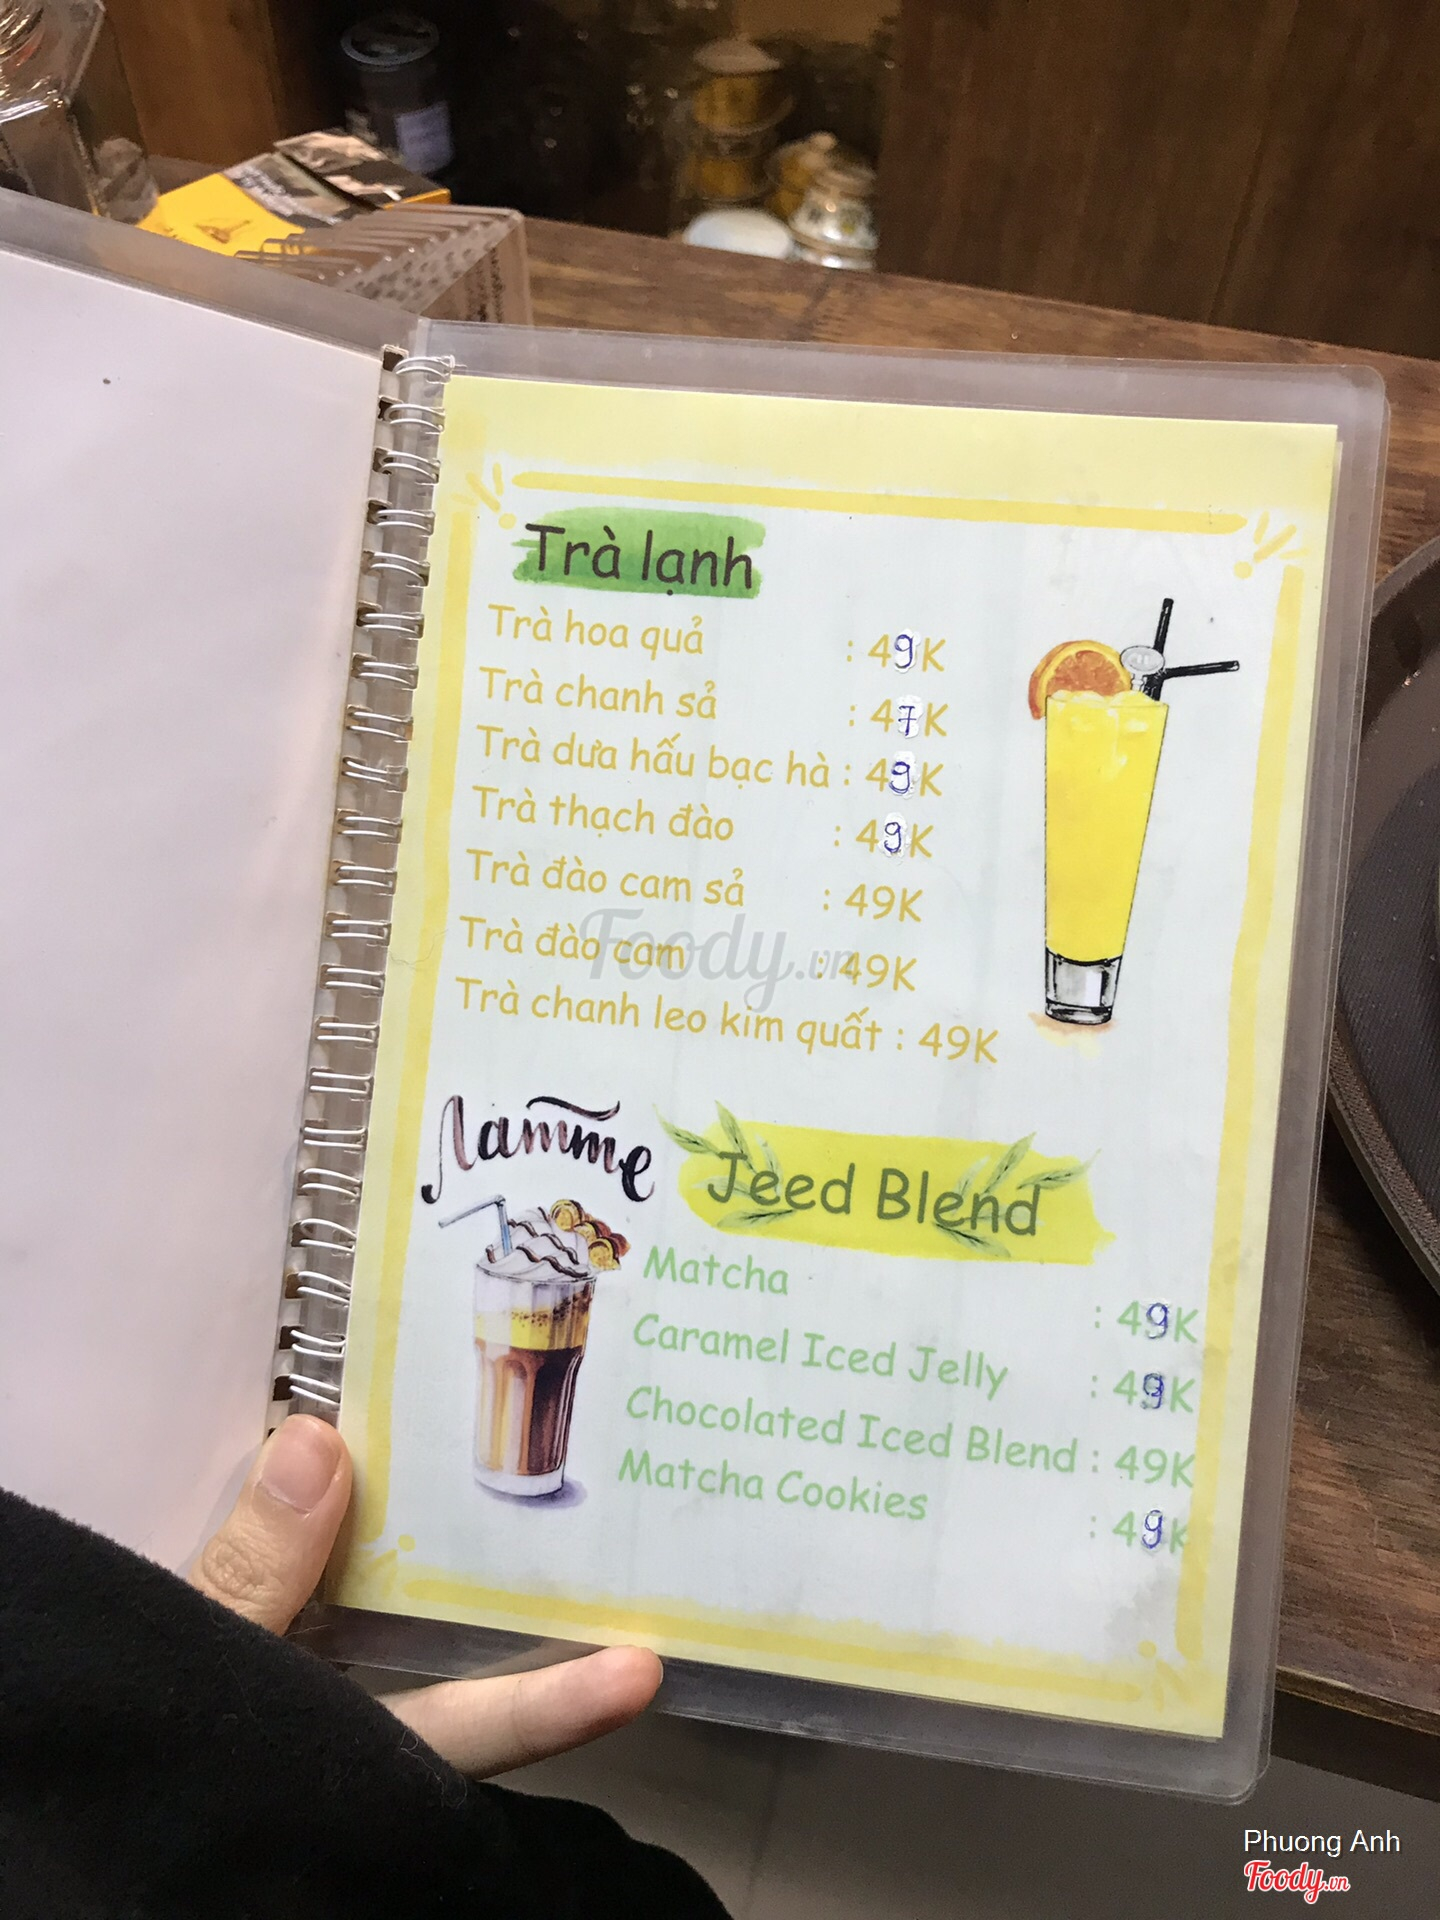 Trà lạnh
Trà hoa quả : 49K
Trà chanh sả : 47K
Trà dưa hấu bạc hà : 49K
Trà thạch đào : 49K
Trà đào cam sả : 49K
Trà đào cam : 49K
Trà chanh leo kim quất : 49K
Foody.vn
Namme
Jeed Blend
Matcha : 49K
Caramel Iced Jelly : 49K
Chocolated Iced Blend : 49K
Matcha Cookies : 49K
Phuong Anh
Foody.vn